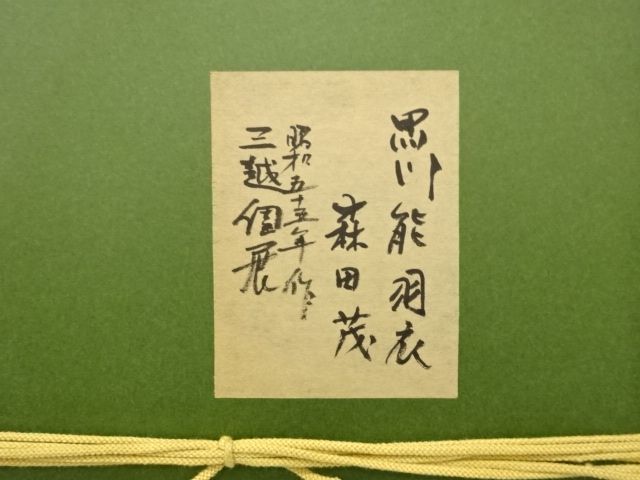 黒川能羽衣
森田茂
昭和五十五年作
三越個展